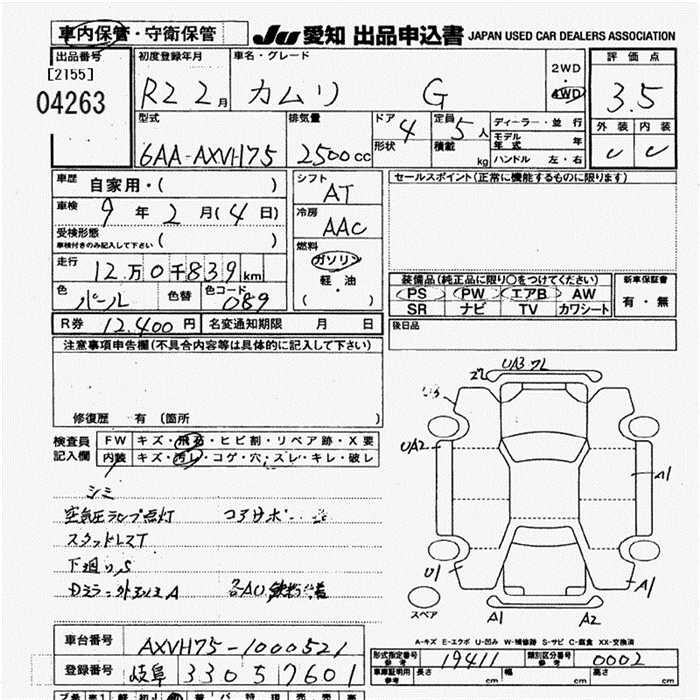 車内保管・守衛保管
JU 愛知 出品申込書 JAPAN USED CAR DEALERS ASSOCIATION
出品番号
[2155]
04263
初度登録年月
R2 2月
車名・グレード
カムリ G
2WD
・
4WD
評価点
3.5
外装 内装
C C
型式
6AA-AXVH75
排気量
2500cc
ドア 4
形状
定員 5人
積載 kg
ディーラー・並行
モデル年式 年
ハンドル 左・右
車歴 自家用・( )
車検 9年2月(4日)
受検形態
車検付きのみ記入して下さい ( )
走行 12万0千839km
色 パール 色替 色コード 089
R券 12,400円 名変通知期限 月 日
シフト AT
冷房 AAC
燃料
ガソリン
軽油
( ・ )
セールスポイント(正常に機能するものに限ります)
装備品(純正品に限り○をつけてください)
PS PW エアB AW
SR ナビ TV カワシート
新車保証書
有・無
後日品
注意事項申告欄(不具合内容等は具体的に記入して下さい)
修復歴 有 (箇所 )
検査員
記入欄
FW キズ・飛石・ヒビ割・リペア跡・X要
内装 キズ・汚レ・コゲ・穴・スレ・キレ・破レ
シミ
空気圧ランプ点灯
スタッドレスT
下廻りS
Dミラー
UA3
UA2
A1
U1
A1
スペア
A1 A2
A-キズ E-エクボ U-凹み W-補修跡 S-サビ C-腐食 XX-交換済
車台番号 AXVH75-1000521
登録番号 岐阜 330 5 7601
形式指定番号
参考
19411
類別区分番号
参考
0002
車庫証明用
参考
長さ cm 幅 cm 高さ cm